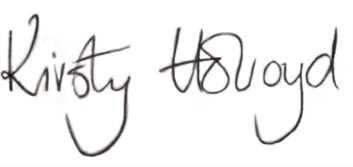 Kirsty Holroyd